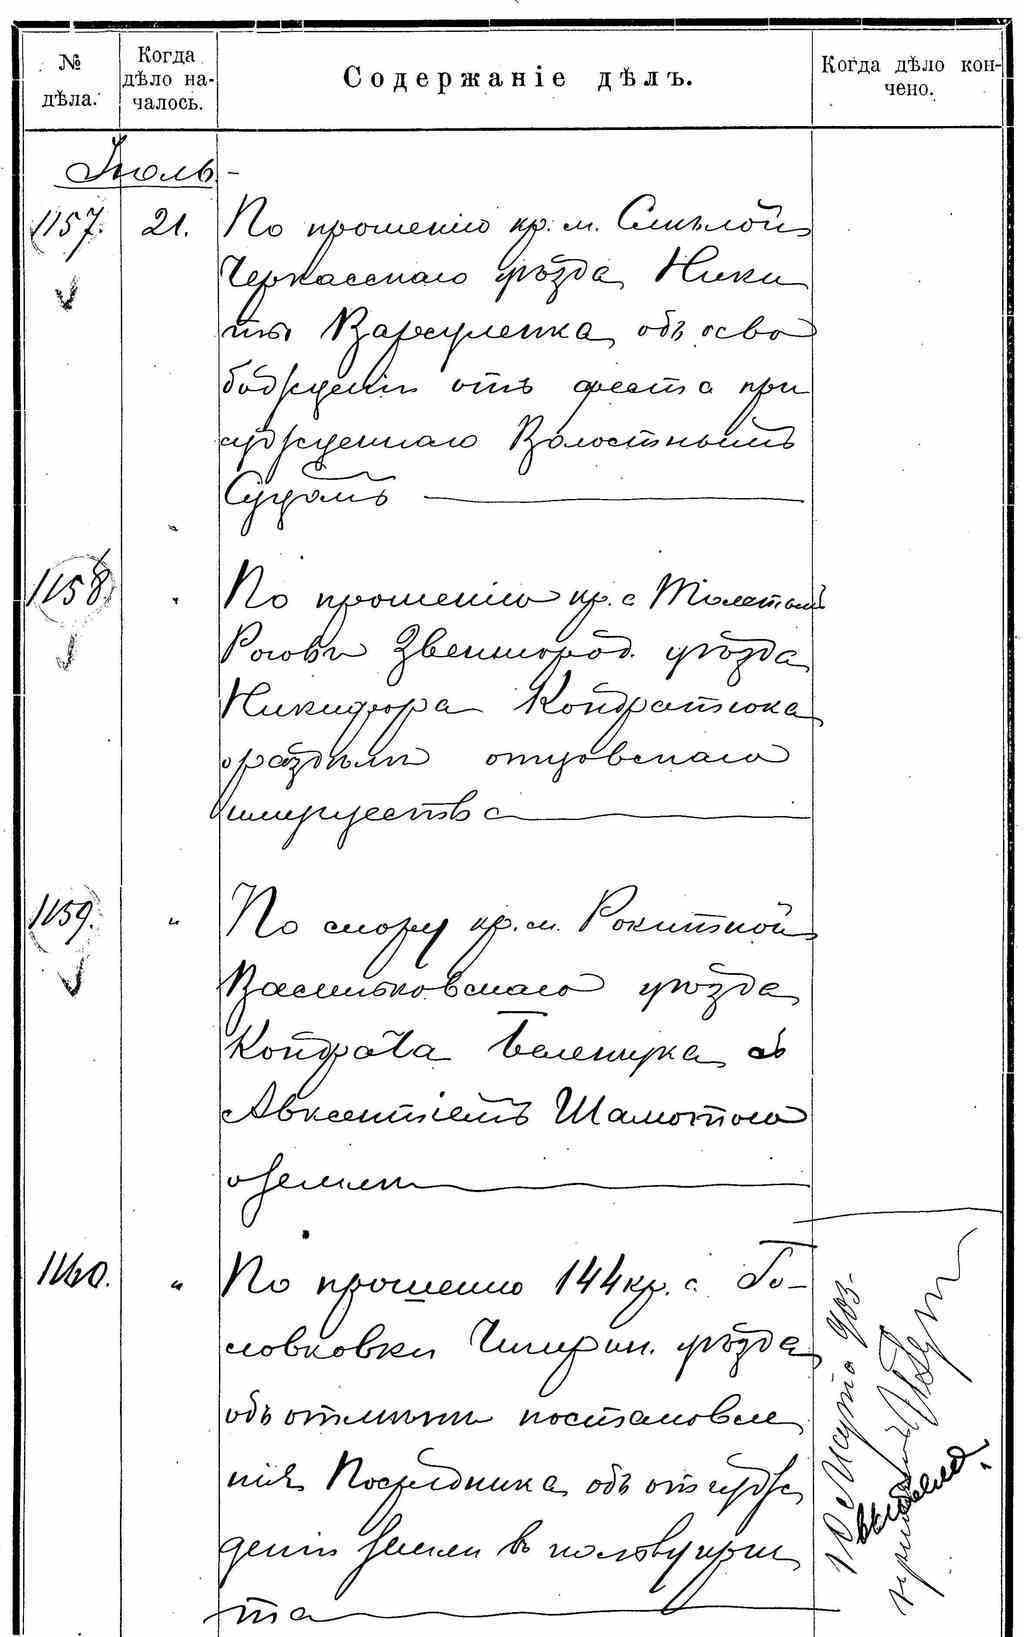 № дѣла.
Когда дѣло на-
чалось.
Содержаніе дѣлъ.
Когда дѣло кон-
чено.
Іюль -
1157. 21. По прошенію кр. м. Смѣлой
Черкасскаго уѣзда Ники
ты Варсуленка, объ осво
божденіи отъ ареста при
сужденнаго Волостнымъ
Судомъ
1158. " По прошенію кр. с Толстыхъ
Роговъ Звенигород. уѣзда
Никифора Кондратюка
о раздѣлѣ отцовскаго
имущества
1159. " По спору кр. м. Рокитной
Васильковскаго уѣзда
Кондрата Беленчука съ
Авксентіемъ Шамотою
о землѣ
1160. " По прошенію 144 кр. с. Го-
ловковки Чигирин. уѣзда
объ отмѣнѣ постановле
нія Посредника объ отсуж
деніи земли въ пользу при
та
10 Марта 903-